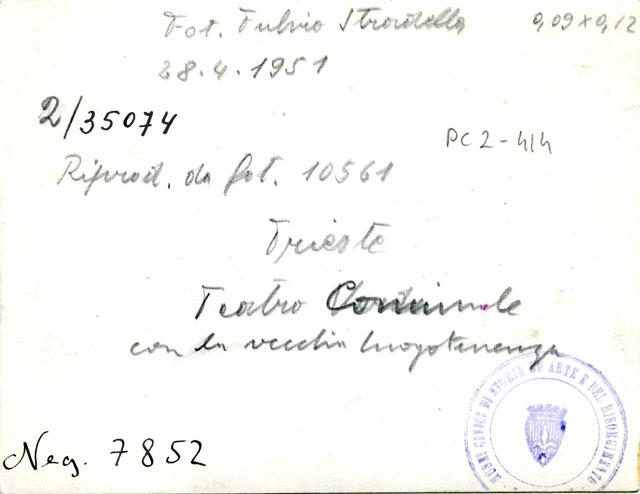 Fot. Fulvio Stradella 0,09x0,12
28.4.1951
2/35074
PC2-4/4
Riprod. da fot. 10561
Trieste
Teatro Comunale
con la vecchia luogotenenza
Neg. 7852
MUSEI CIVICI DI STORIA ED ARTE E DEL RISORGIMENTO